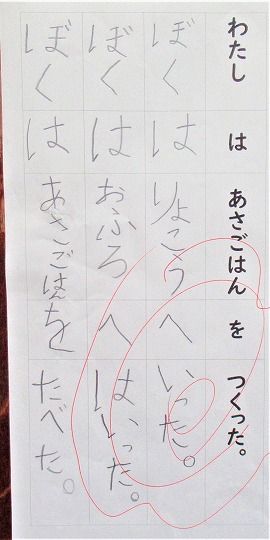 わたし は あさごはん を つくった。
ぼく は りょこう へ いった。
ぼく は おふろ へ はいった。
ぼく は あさごはん を たべた。